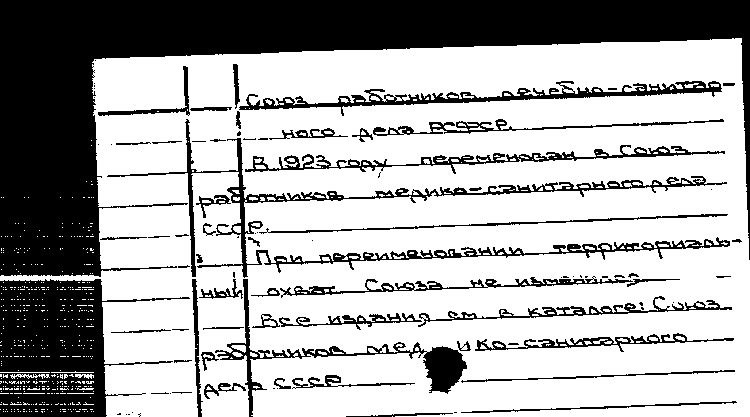 Союз работников лечебно-санитар-
ного дела РСФСР.
В 1923 году переменован в Союз
работников медико-санитарного дела
СССР.
При переименовании территориаль-
ный охват Союза не изменился
Все издания см. в каталоге: Союз
работников медико-санитарного
дела СССР